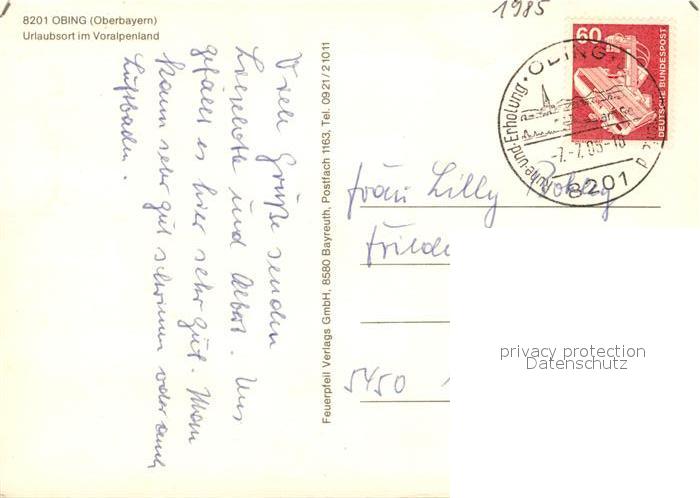 8201 OBING (Oberbayern)
Urlaubsort im Voralpenland
1985
Viele Grüße senden
Liselotte und Albert. Uns
gefällt es hier sehr gut. Man
kann sehr gut schwimmen oder auch
Luftbaden.
Feuerpfeil Verlags GmbH, 8580 Bayreuth, Postfach 1163, Tel. 0921/21011
60
DEUTSCHE BUNDESPOST
OBING
Ruhe-und-Erholung
am See
-7.-7.85-18
8201
Frau Lilly
Friede
5450
privacy protection
Datenschutz